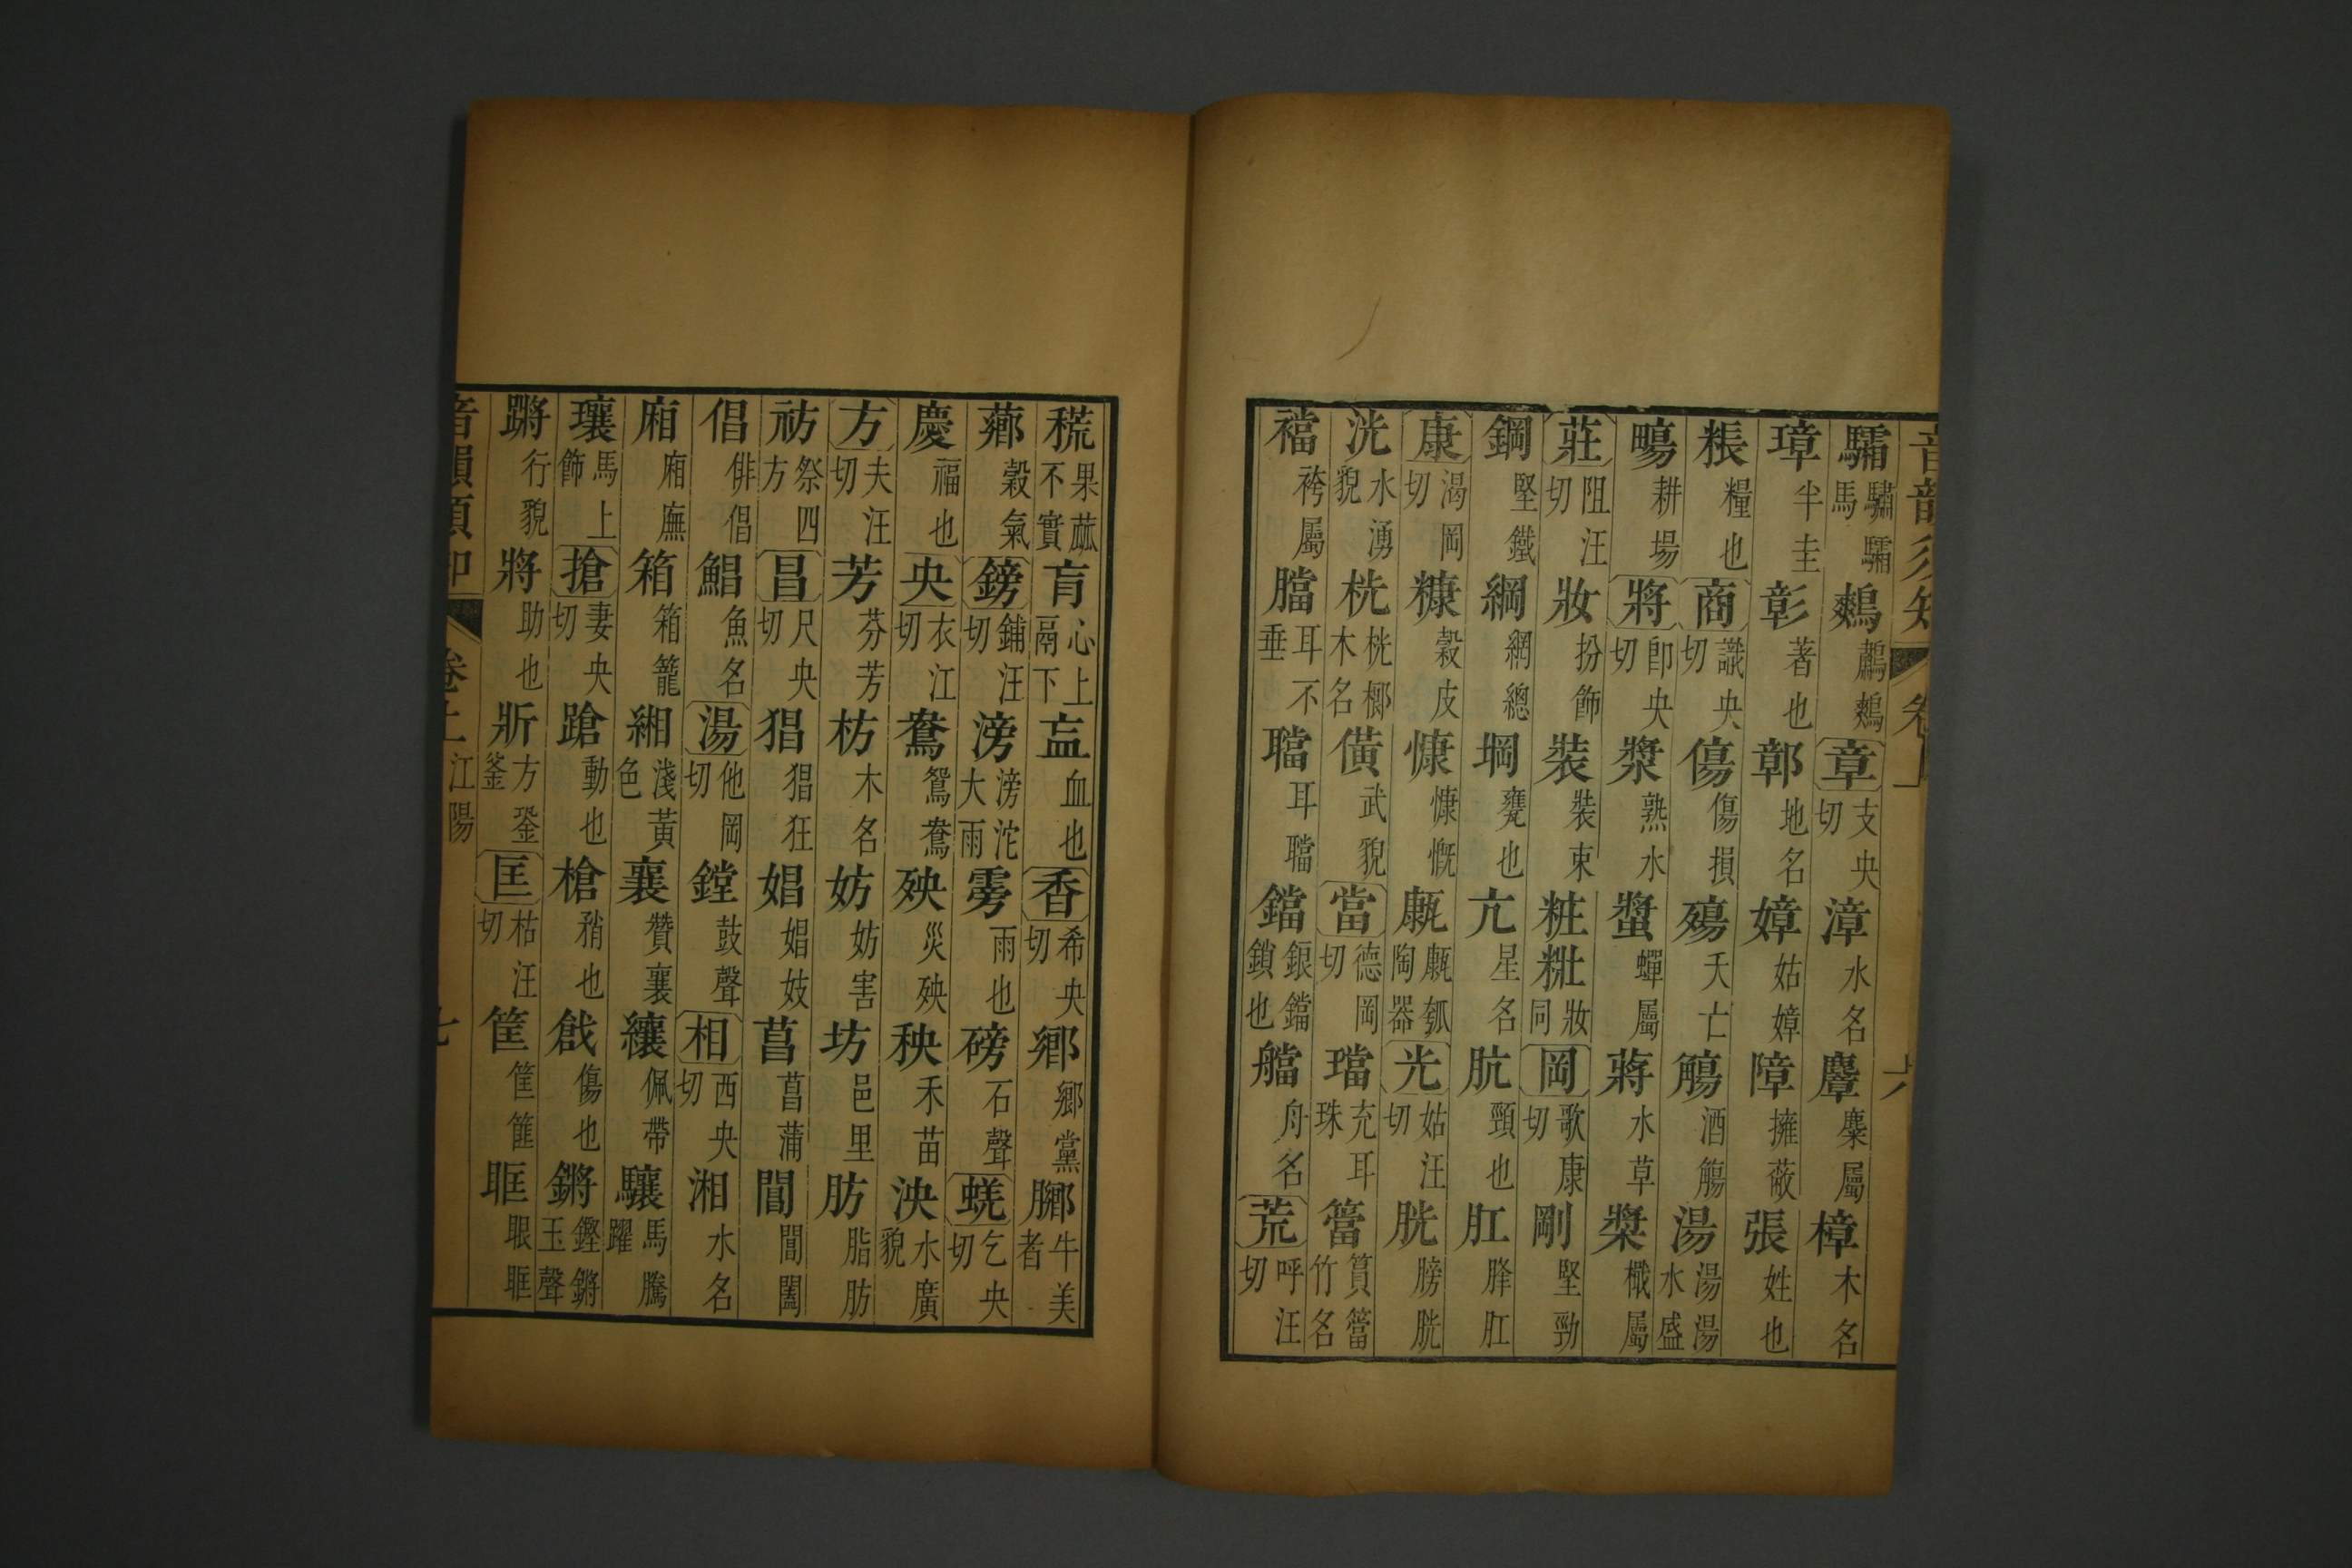 音韻須知 卷上 六
驦驦驌馬 鷞鷫鷞 章支央切 漳水名 麞麋屬 樟木名
璋半圭 彰著也 鄣地名 嫜姑嫜 障擁蔽 張姓也
粻糧也 商識央切 傷傷損 殤夭亡 觴酒觴 湯湯湯水盛
畼耕場 將卽央切 漿熟水 螿蟬屬 蔣水草 槳檝屬
莊阻汪切 妝扮飾 裝裝束 粧𥹥妝同 岡歌康切 剛堅勁
鋼堅鐵 綱網總 堈甕也 亢星名 肮頸也 肛胮肛
康渴岡切 糠穀皮 慷慷慨 甂陶器 光姑汪切 胱膀胱
洸水湧貌 桄桄榔木名 僙武貌 當德岡切 璫充耳珠 簹篔簹竹名
襠袴屬 膛耳不垂 聸耳璫 鐺鋃鐺鎖也 艡舟名 荒呼汪切
𥠦果蓏不實 肓心上鬲下 衁血也 香希央切 鄉鄉黨 膷牛美者
薌穀氣 鎊鋪汪切 滂滂沱大雨 雱雨也 磅石聲 蜣乞央切
慶福也 央衣江切 鴦鴛鴦 殃災殃 秧禾苗 泱水廣貌
方夫汪切 芳芬芳 枋木名 妨妨害 坊邑里 肪脂肪
祊祭四方 昌尺央切 猖猖狂 娼娼妓 菖菖蒲 閶閶闔
倡俳倡 鯧魚名 湯他岡切 鏜鼓聲 相西央切 湘水名
廂廂廡 箱箱籠 緗淺黃色 襄贊襄 纕佩帶 驤馬騰躍
瓖馬上飾 搶妻央切 蹌動也 槍矟也 戧傷也 鏘鏗鏘玉聲
蹡行貌 將助也 斨方銎斧 匡枯汪切 筐筐篚 眶眼眶
音韻須知 卷上 江陽 七